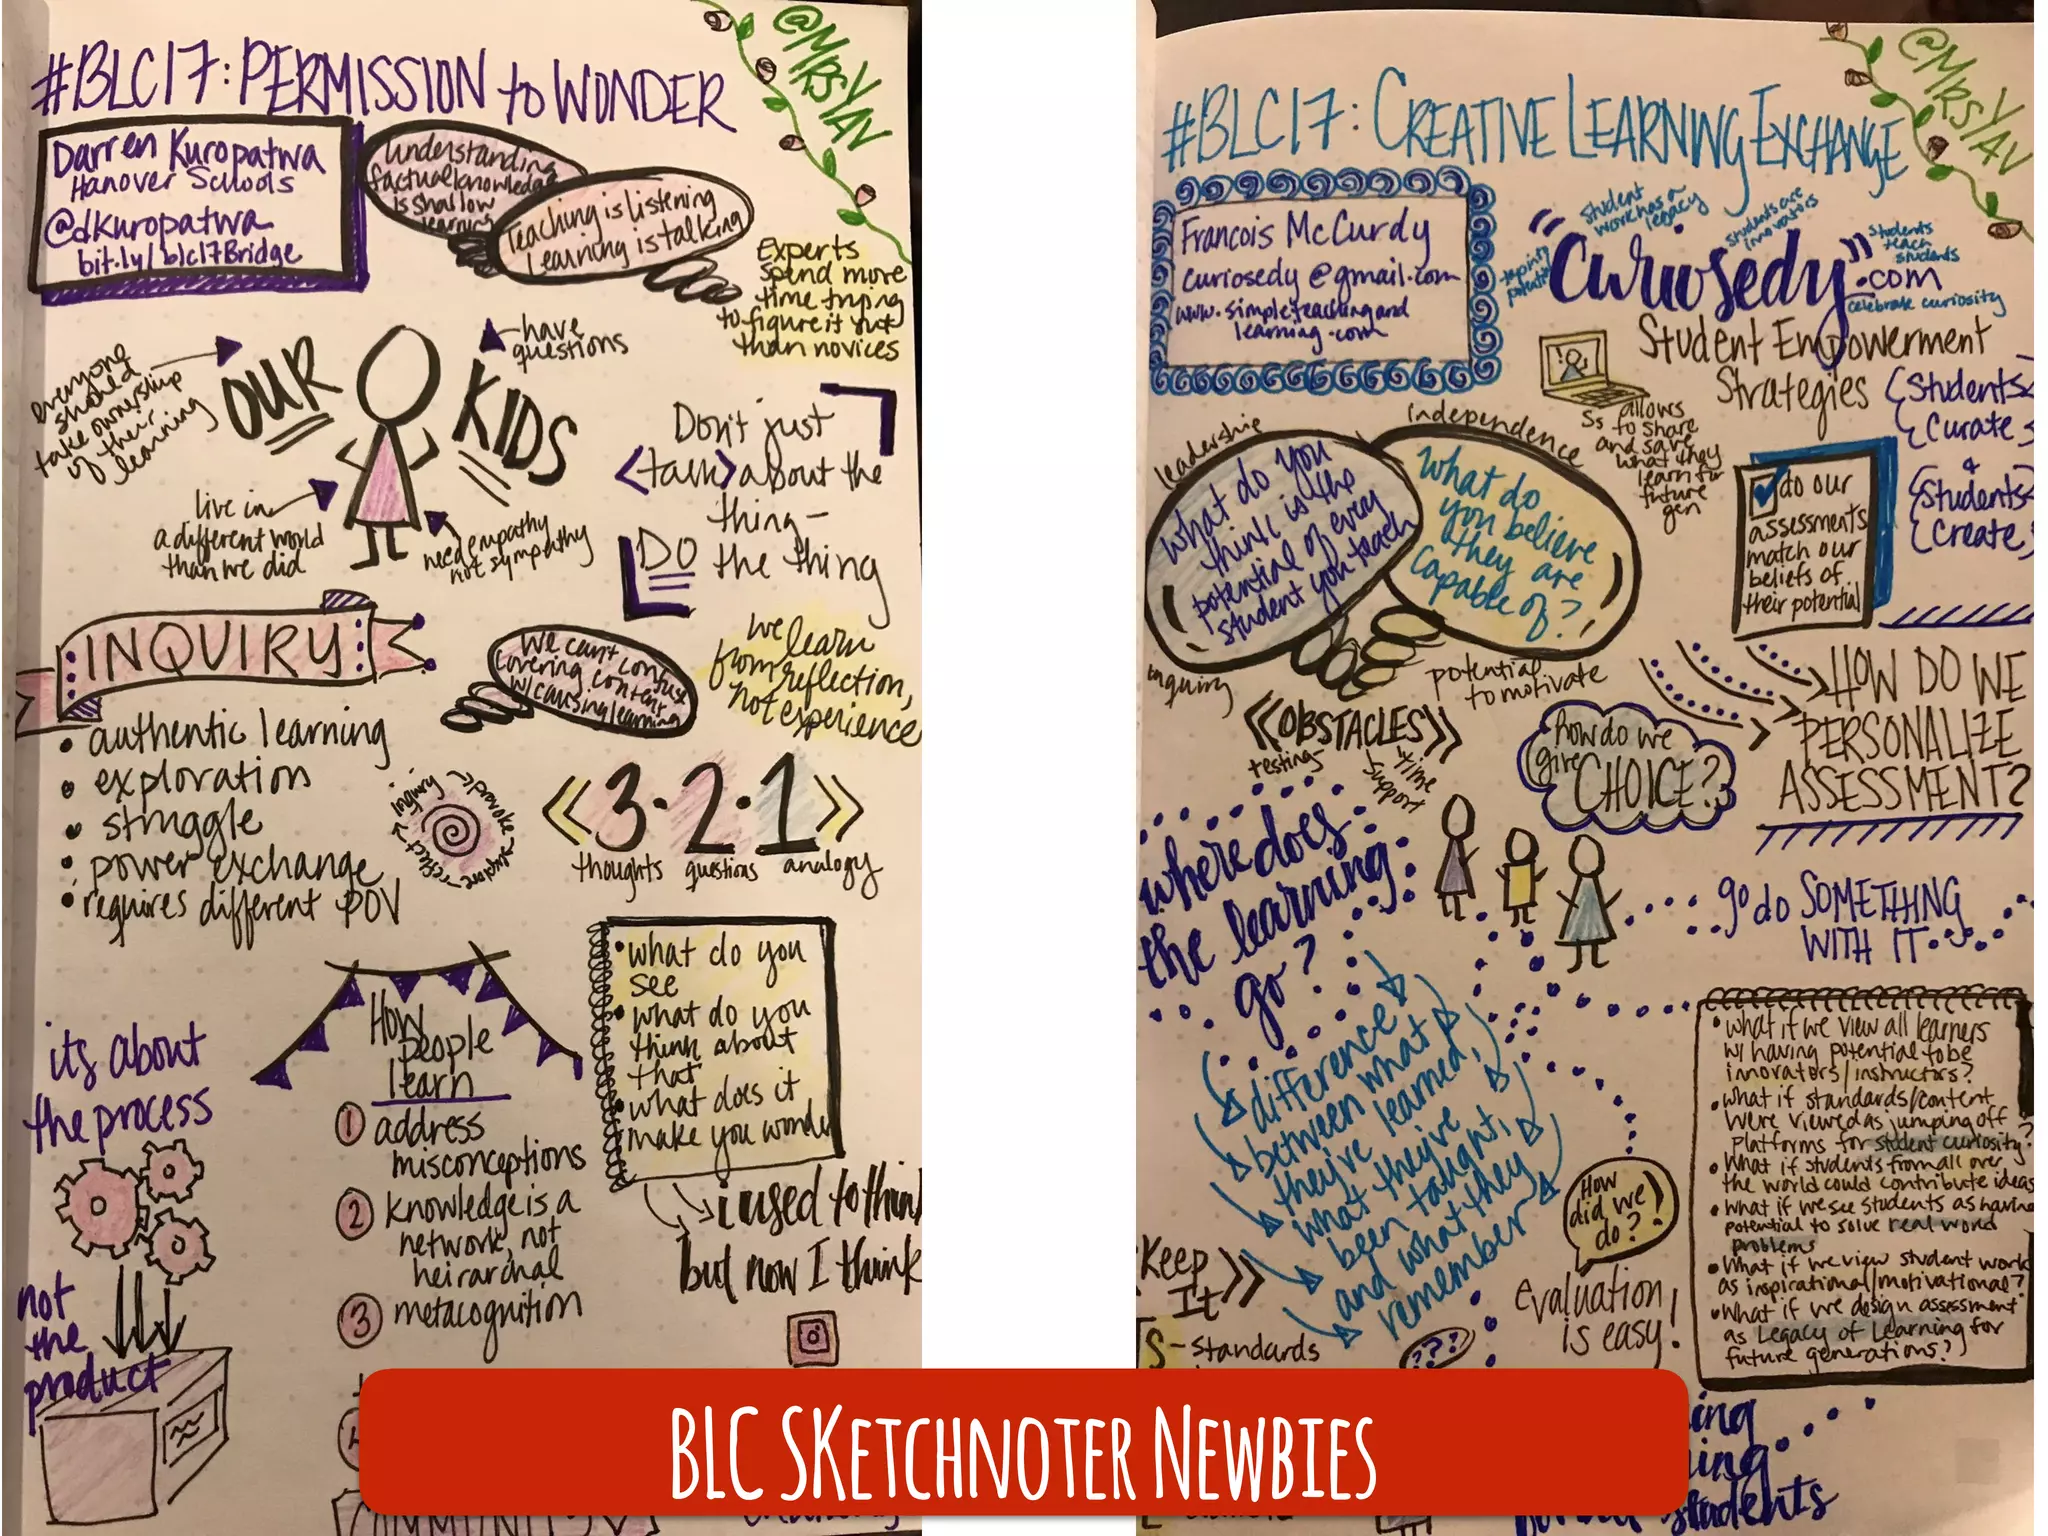 #BLC17: PERMISSION to WONDER
@MRSYAV
Darren Kuropatwa
Hanover Schools
@dkuropatwa
bit.ly/blc17Bridge
Understanding
factual knowledge
is shallow
learning
Teaching is listening
learning is talking
Experts
spend more
time trying
to figure it out
than novices
everyone
should
take ownership
of their
learning
OUR
KIDS
have
questions
live in
a different world
than we did
need empathy
not sympathy
Don't just
<talk> about the
thing-
DO the thing
INQUIRY
• authentic learning
• exploration
• struggle
• power exchange
• requires different POV
we can't confuse
covering content
w/causing learning
we learn
from reflection,
not experience
inquiry → provoke → explore → reflect →
<<3·2·1>>
thoughts questions analogy
• what do you
see
• what do you
think about
that
• what does it
make you wonder
i used to think
but now I think
its about
the process
not
the
product
How
people
learn
1 address
misconceptions
2 knowledge is a
network, not
heirarchal
3 metacognition
#BLC17: CREATIVE LEARNING EXCHANGE
@MRSYAV
Francois McCurdy
curiosedy@gmail.com
www.simpleteachingand
learning.com
student
work has a
legacy
students are
innovators
students
teach
students
"Curiosedy".com
celebrate curiosity
Student Empowerment
Strategies
Ss allows
to share
and save
what they
learn for
future
gen
{Students
{Curate
&
{Students
{Create
leadership
independence
inquiry
potential
to motivate
What do you
think is the
potential of every
student you teach
What do
you believe
they are
capable of?
do our
assessments
match our
beliefs of
their potential
<<OBSTACLES>>
testing
time
support
how do we
give
CHOICE?
HOW DO WE
PERSONALIZE
ASSESSMENT?
where does
the learning
go?
go do SOMETHING
WITH IT
difference
between what
they've learned,
what they've
been taught,
and what they
remember
Keep
It >>
S - standards
???
How
did we
do?
evaluation
is easy!
• What if we view all learners
w/ having potential to be
innovators/instructors?
• What if standards/content
were viewed as jumping off
platforms for student curiosity?
• What if students from all over
the world could contribute ideas
• What if we see students as having
potential to solve real world
problems
• What if we view student work
as inspirational/motivational?
• What if we design assessment
as Legacy of Learning for
future generations?
students
BLC SKETCHNOTER NEWBIES